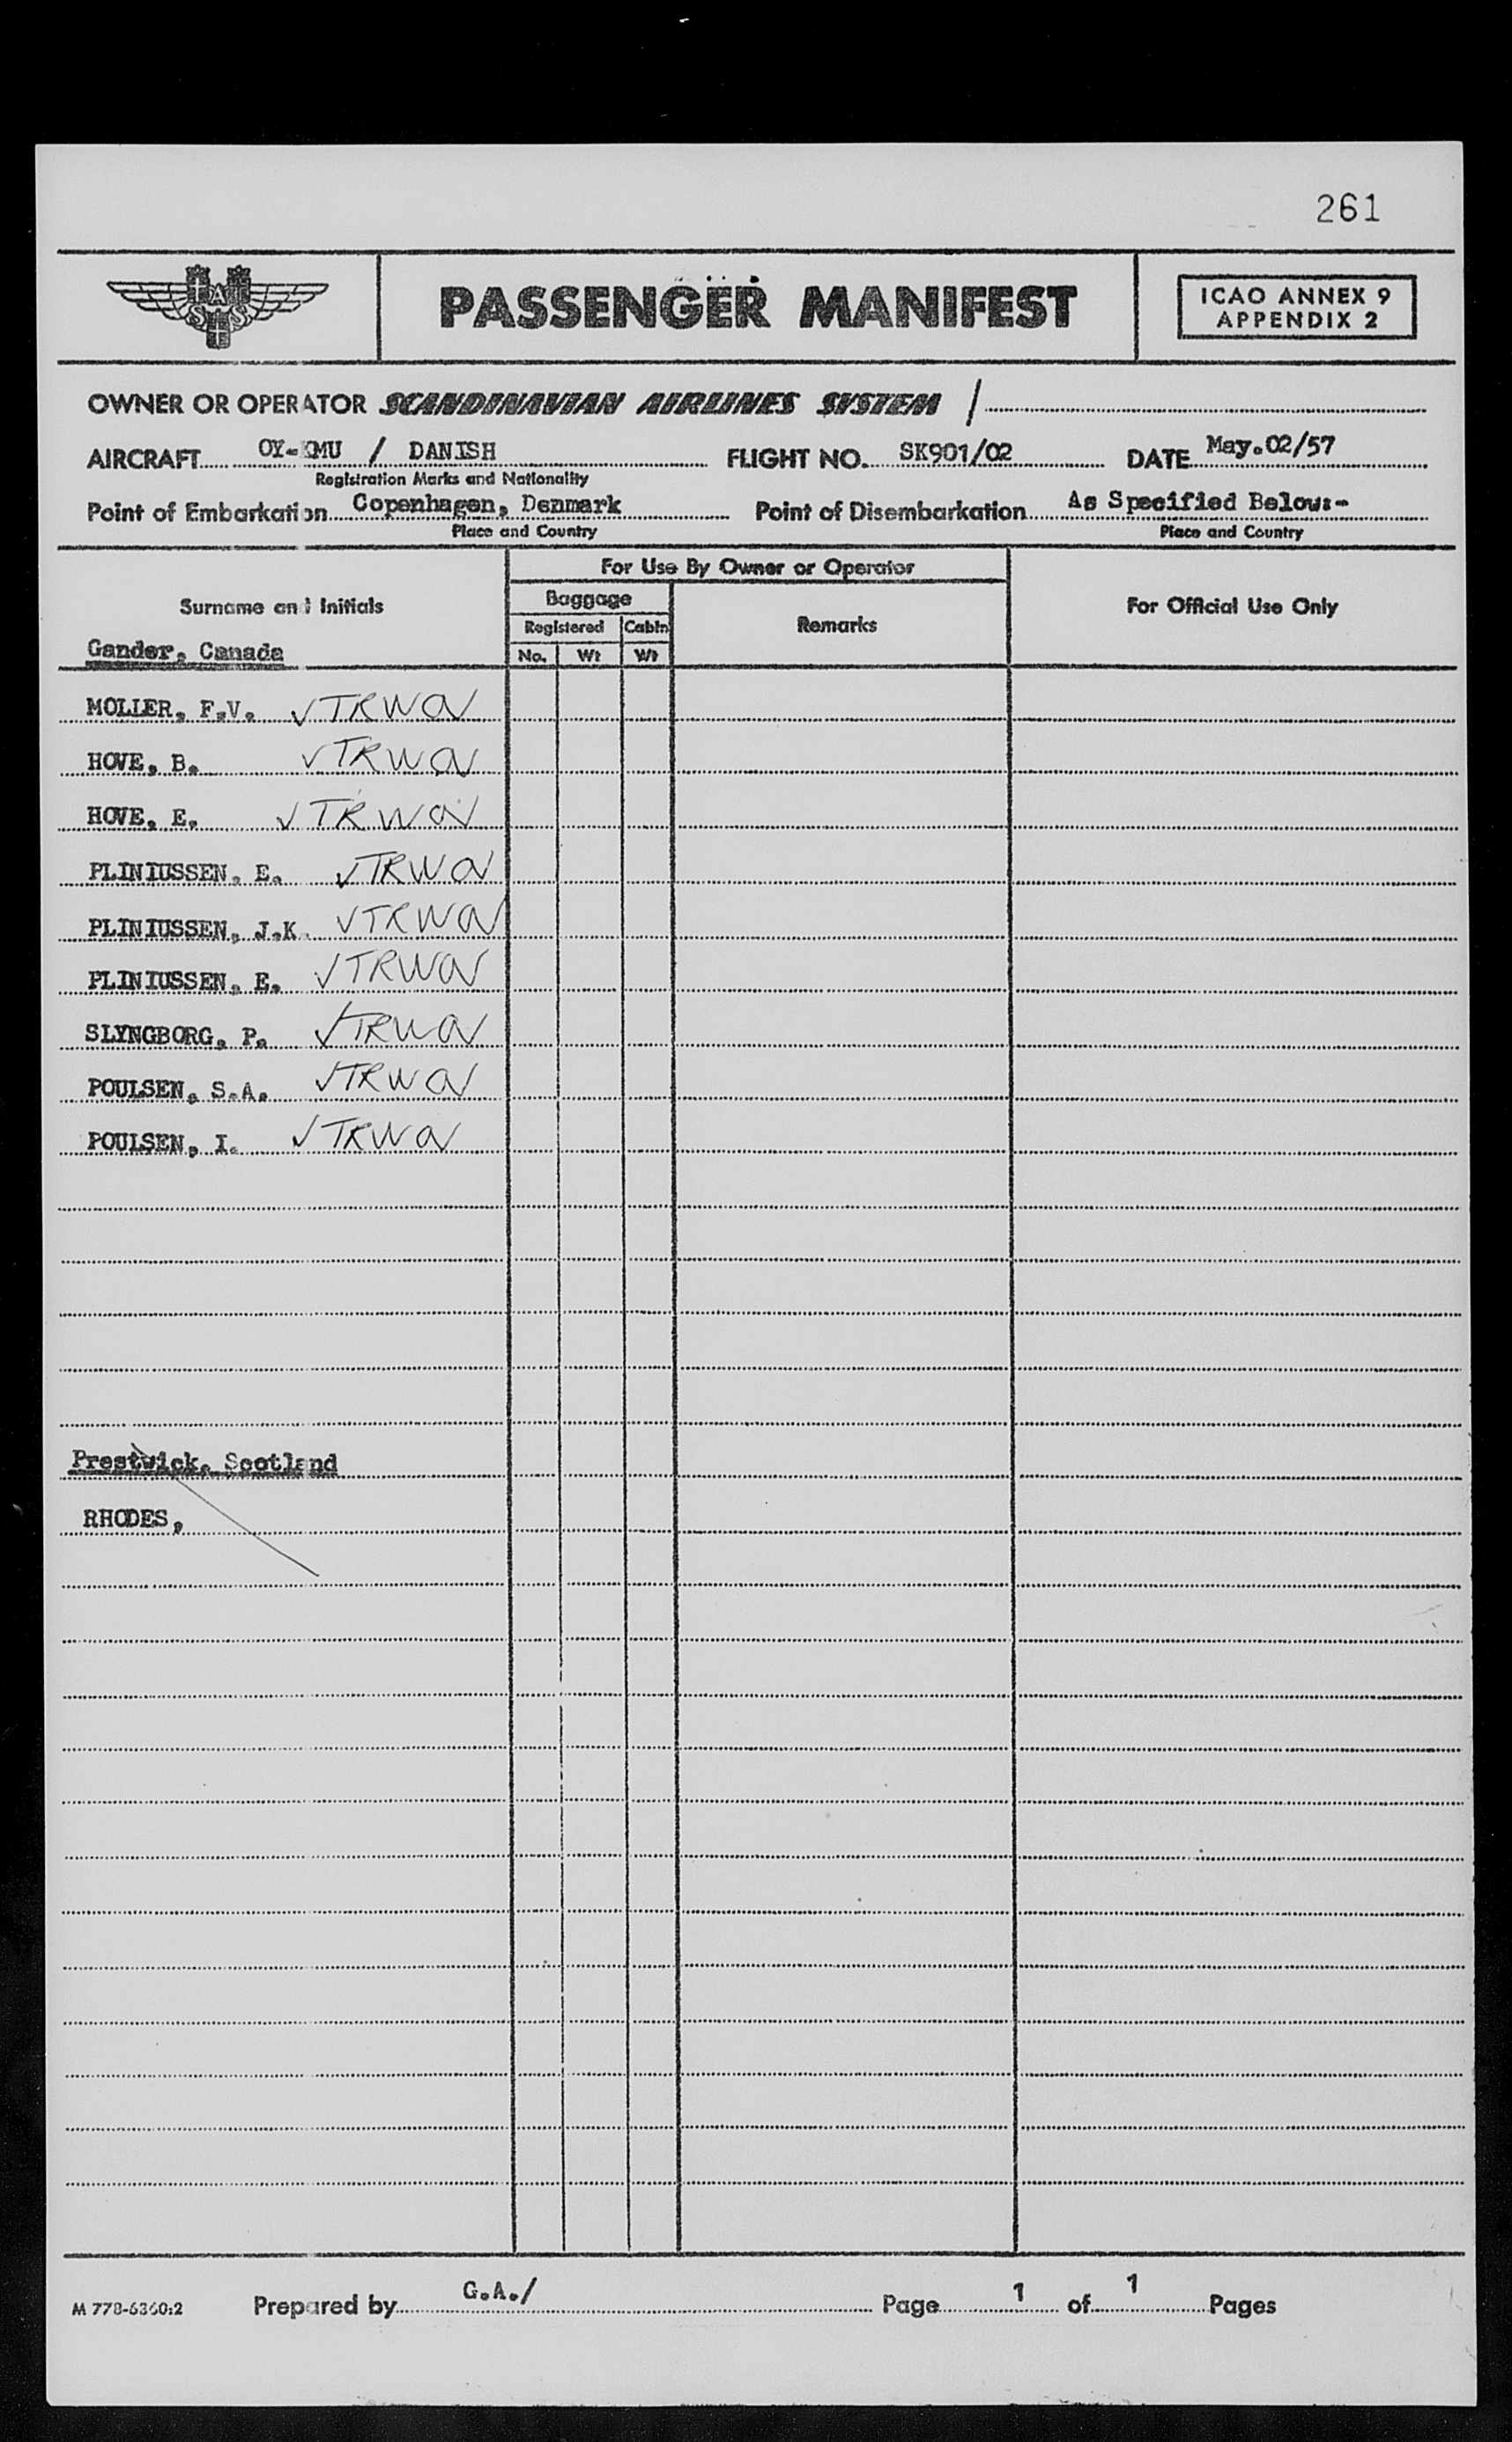 261
SAS
PASSENGER MANIFEST
ICAO ANNEX 9
APPENDIX 2
OWNER OR OPERATOR SCANDINAVIAN AIRLINES SYSTEM /
AIRCRAFT OY-KMU / DANISH FLIGHT NO. SK901/02 DATE May.02/57
Registration Marks and Nationality
Point of Embarkation Copenhagen, Denmark Point of Disembarkation As Specified Below:-
Place and Country Place and Country
For Use By Owner or Operator
Surname and Initials Baggage Remarks For Official Use Only
Registered Cabin
Gander, Canada No. Wt Wt
MOLLER, F.V. ✓TRWA
HOVE, B. ✓TRWA
HOVE, E. ✓TRWA
PLINIUSSEN, E. ✓TRWA
PLINIUSSEN, J.K. ✓TRWA
PLINIUSSEN, E. ✓TRWA
SLYNGBORG, P. ✓TRWA
POULSEN, S.A. ✓TRWA
POULSEN, I. ✓TRWA
Prestwick, Scotland
RHODES,
M 778-6360:2 Prepared by G.A./ Page 1 of 1 Pages